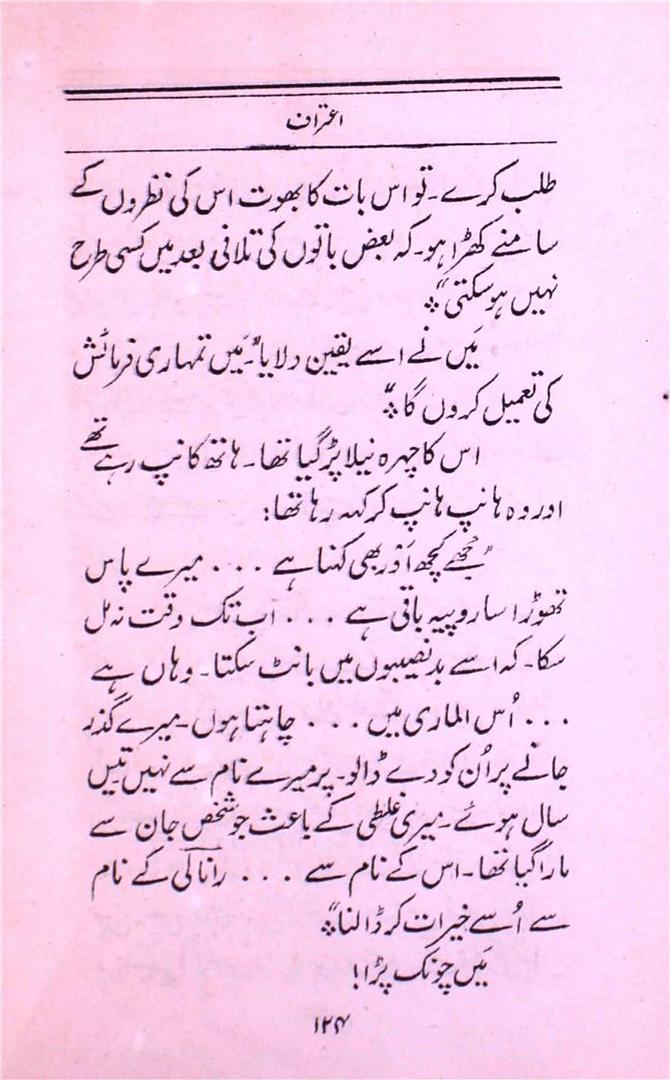 اعتراف
طلب کرے۔ تو اس بات کا بھوت اس کی نظروں کے
سامنے کھڑا ہو۔ کہ بعض باتوں کی تلافی بعد میں کسی طرح
نہیں ہو سکتی"؞
مَیں نے اسے یقین دلایا"۔ مَیں تمہاری فرمائش
کی تعمیل کروں گا"؞
اس کا چہرہ نیلا پڑ گیا تھا۔ ہاتھ کانپ رہے تھے
اور وہ ہانپ ہانپ کر کہہ رہا تھا:
"مجھے کچھ اَور بھی کہنا ہے ... میرے پاس
تھوڑا سا روپیہ باقی ہے ... اب تک وقت نہ مل
سکا۔ کہ اسے بدنصیبوں میں بانٹ سکتا۔ وہاں ہے
... اُس الماری میں ... چاہتا ہوں۔ میرے گذر
جانے پر اُن کو دے ڈالو۔ پر میرے نام سے نہیں تیس
سال ہوئے۔ میری غلطی کے باعث جو شخص جان سے
مارا گیا تھا۔ اس کے نام سے ... راناکی کے نام
سے اُسے خیرات کر ڈالنا"؞
مَیں چونک پڑا!
۱۲۴